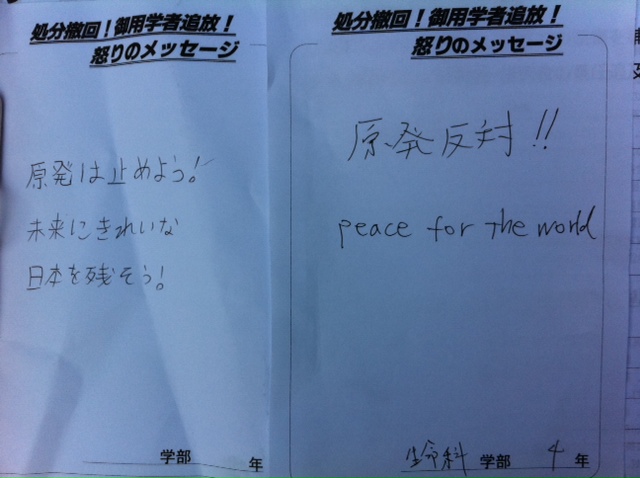 処分撤回！御用学者追放！
怒りのメッセージ
原発は止めよう！
未来にきれいな
日本を残そう！
学部 年
処分撤回！御用学者追放！
怒りのメッセージ
原発反対！！
peace for the world
生命科 学部 4 年